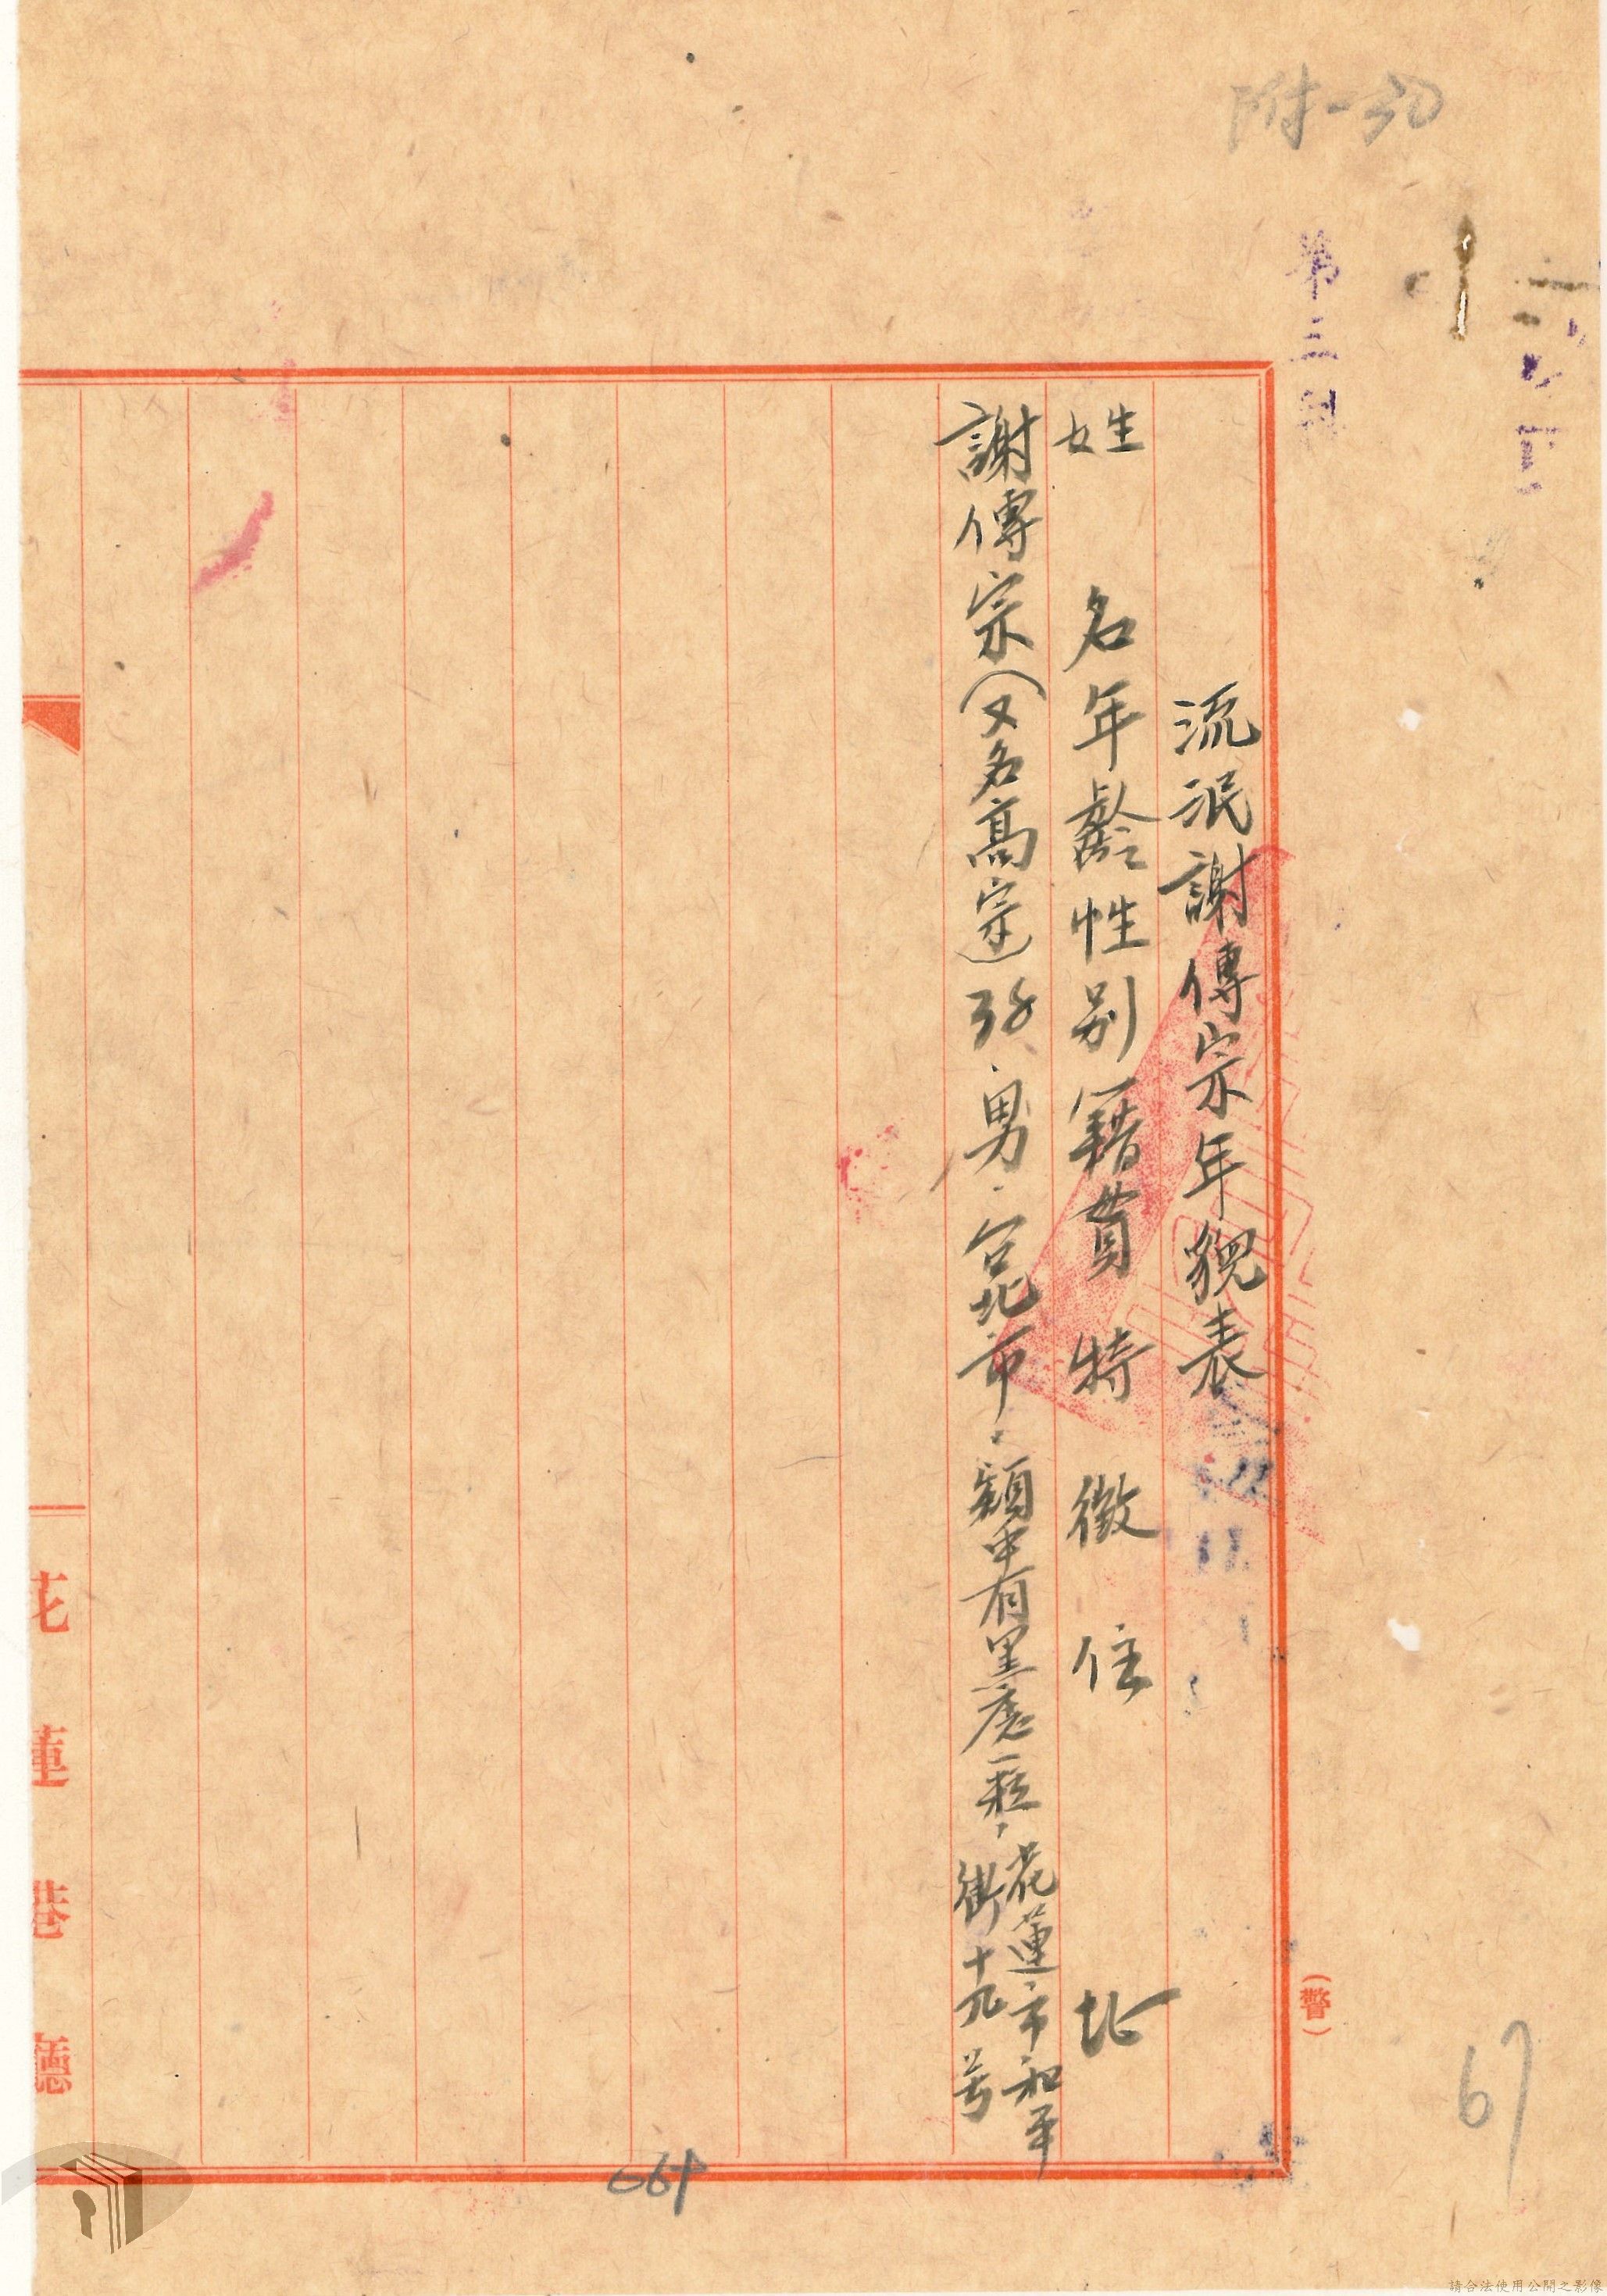 附-30
第三
流氓謝傳宗年貌表
姓名年齡性別籍貫特徵住址
謝傳宗(又名高宗)35.男.台北市.頷中有黑痣一粒,花蓮市和平
街十九号
(警)
花蓮港廳
67
064
請合法使用公開之影像